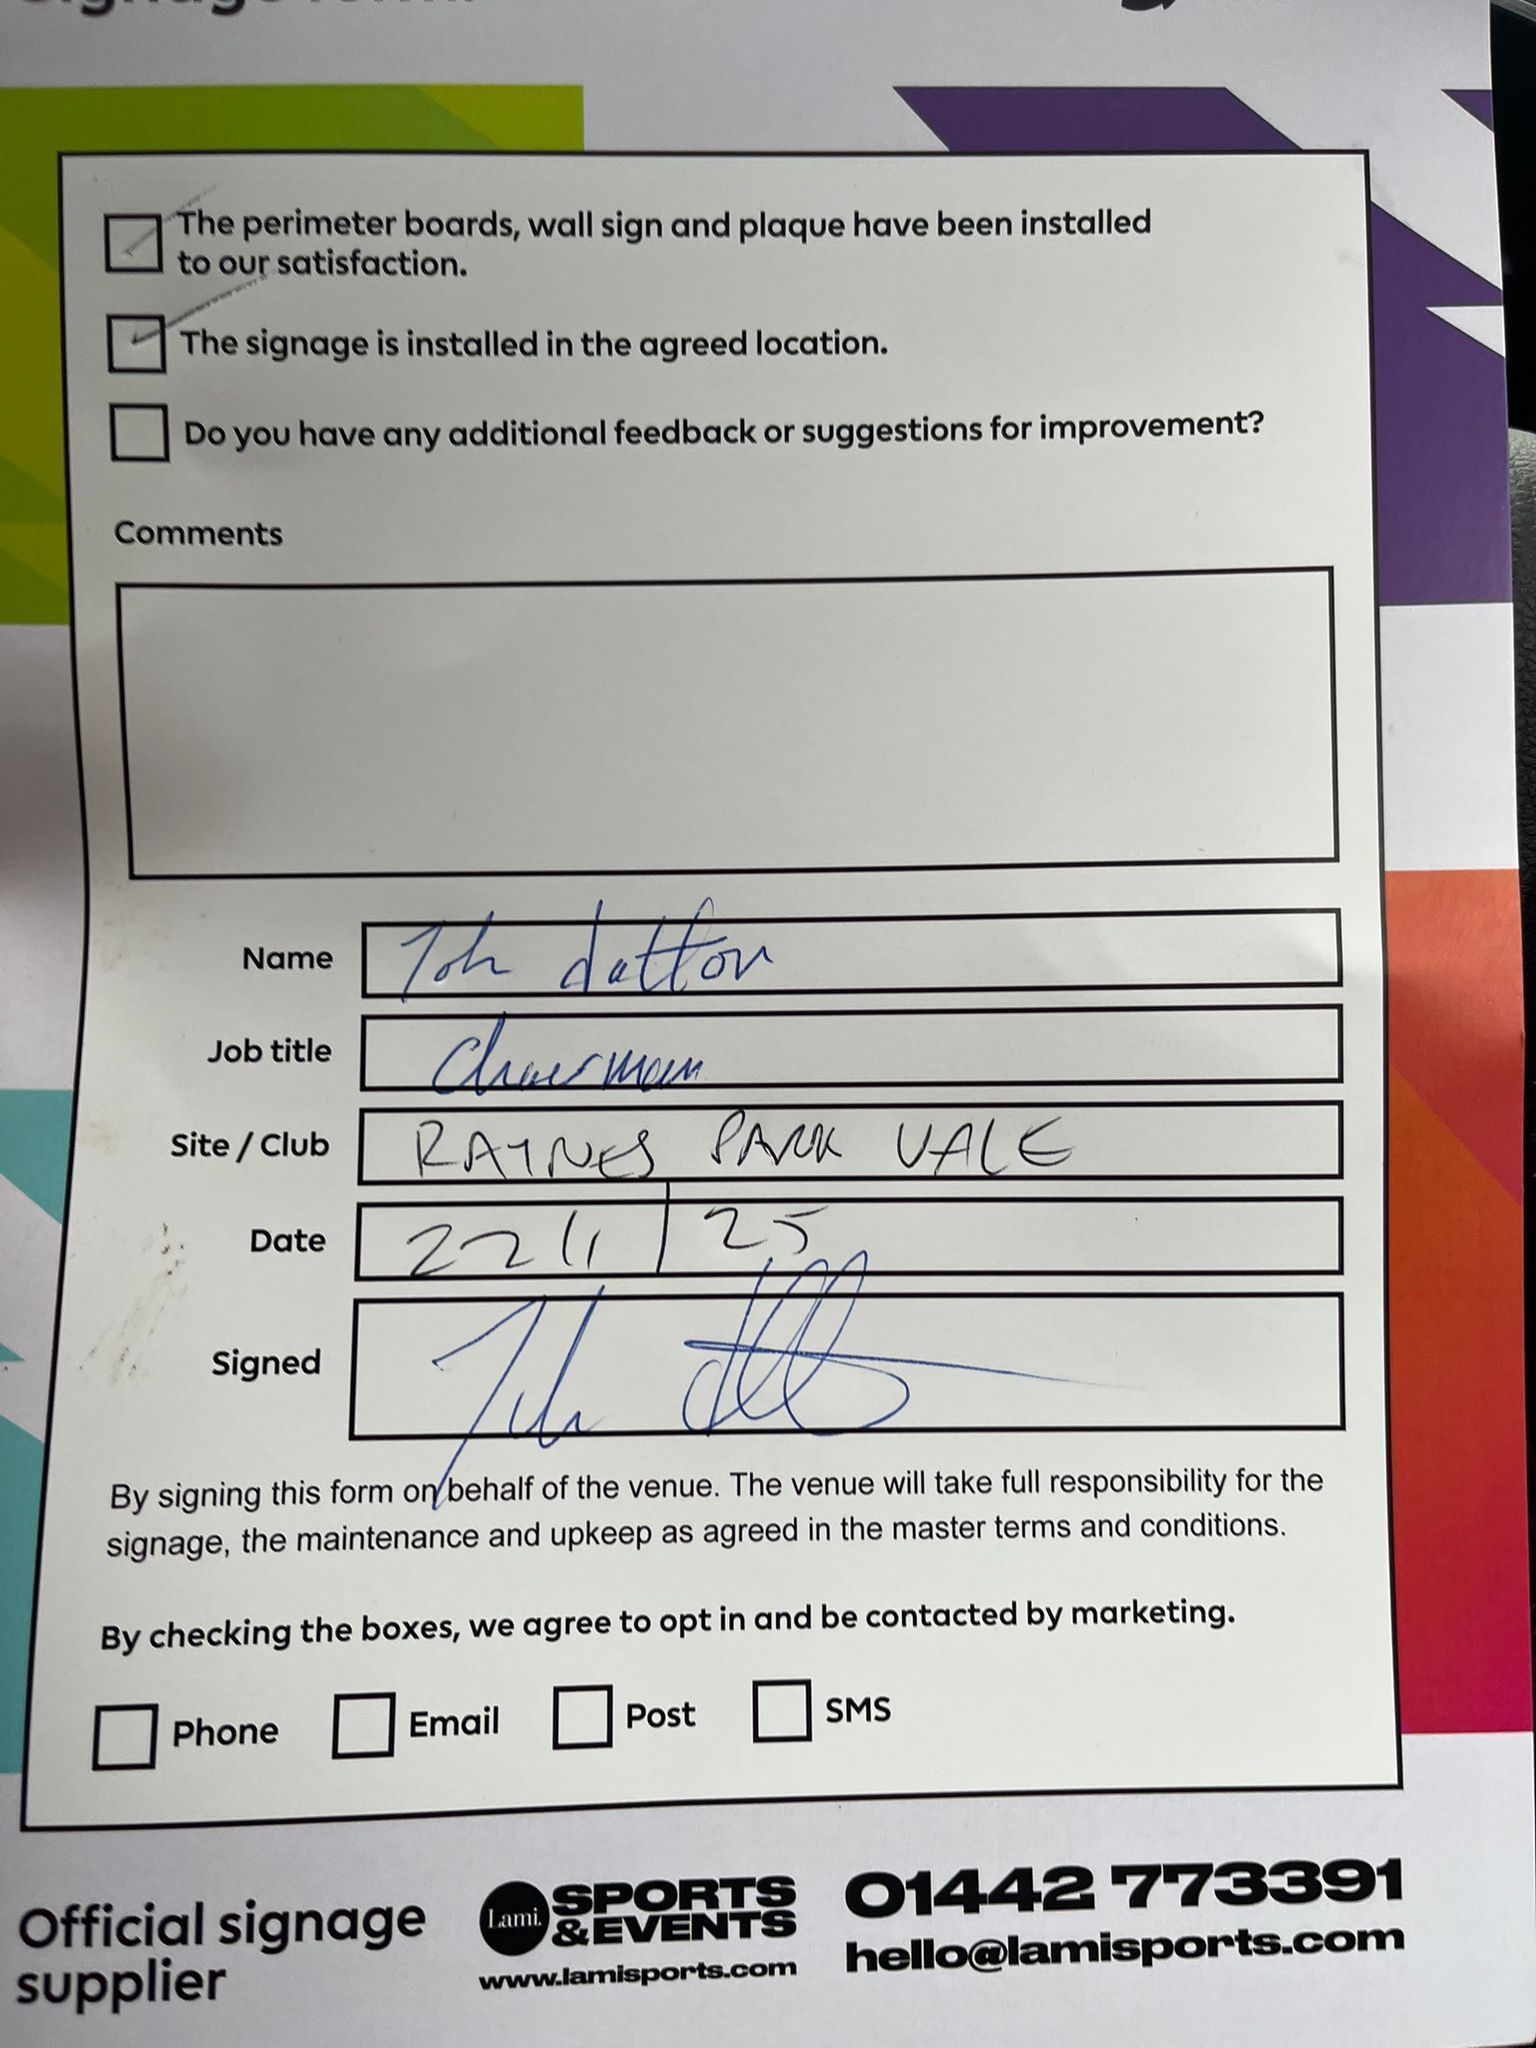 The perimeter boards, wall sign and plaque have been installed
to our satisfaction.
The signage is installed in the agreed location.
Do you have any additional feedback or suggestions for improvement?
Comments
Name Joh dutton
Job title Chairman
Site / Club RAYNES PARK VALE
Date 22/1/25
Signed
By signing this form on behalf of the venue. The venue will take full responsibility for the
signage, the maintenance and upkeep as agreed in the master terms and conditions.
By checking the boxes, we agree to opt in and be contacted by marketing.
Phone Email Post SMS
Official signage
supplier
Lami. SPORTS
& EVENTS
www.lamisports.com
01442 773391
hello@lamisports.com